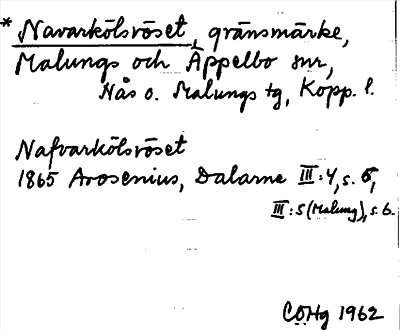 * Navarkölsröset, gränsmärke,
Malungs och Äppelbo snr,
Nås o. Malungs tg, Kopp. l.
Nafvarkölsröset
1865 Arosenius, Dalarne III:4, s. 6,
III:5 (Malung), s. 6.
CÖHg 1962